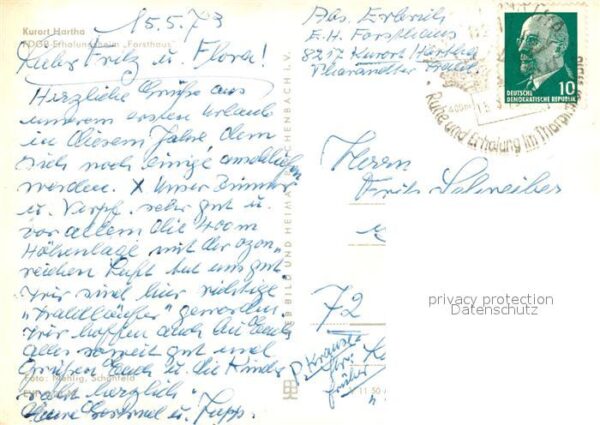 15.5.73
Kurort Hartha
FDGB-Erholungsheim "Forsthaus"
Lieber Fritz u. Flora!
Herzliche Grüße aus
unserem ersten Urlaub
in diesem Jahre dem
sich noch einige anschließen
werden. X Unser Zimmer
u. Verpf. sehr gut u.
vor allem die 400m
Höhenlage mit der ozon-
reichen Luft tut uns gut.
Wir sind hier richtige
"Waldläufer" geworden.
Wir hoffen auch bei Euch
alles soweit gut und
Grüßen Euch u. die Kinder
recht herzlich
Eure u.
Foto: Schönfeld
BILD UND HEIMAT REICHENBACH I. V.
Abs.
E.H. Forsthaus
8217 Kurort Hartha
Tharandter
DEUTSCHE
DEMOKRATISCHE REPUBLIK
10
Ruhe und Erholung im Tharandter Wald
Herrn
Fritz Schreiber
72
früher
privacy protection
Datenschutz